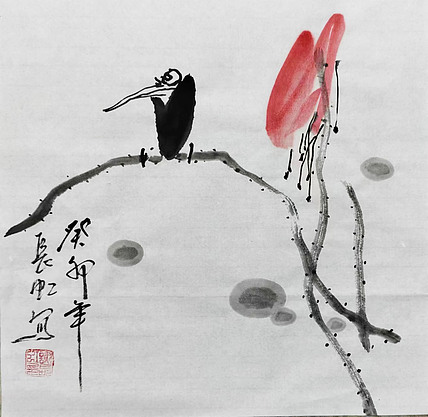 癸卯年
長虹寫